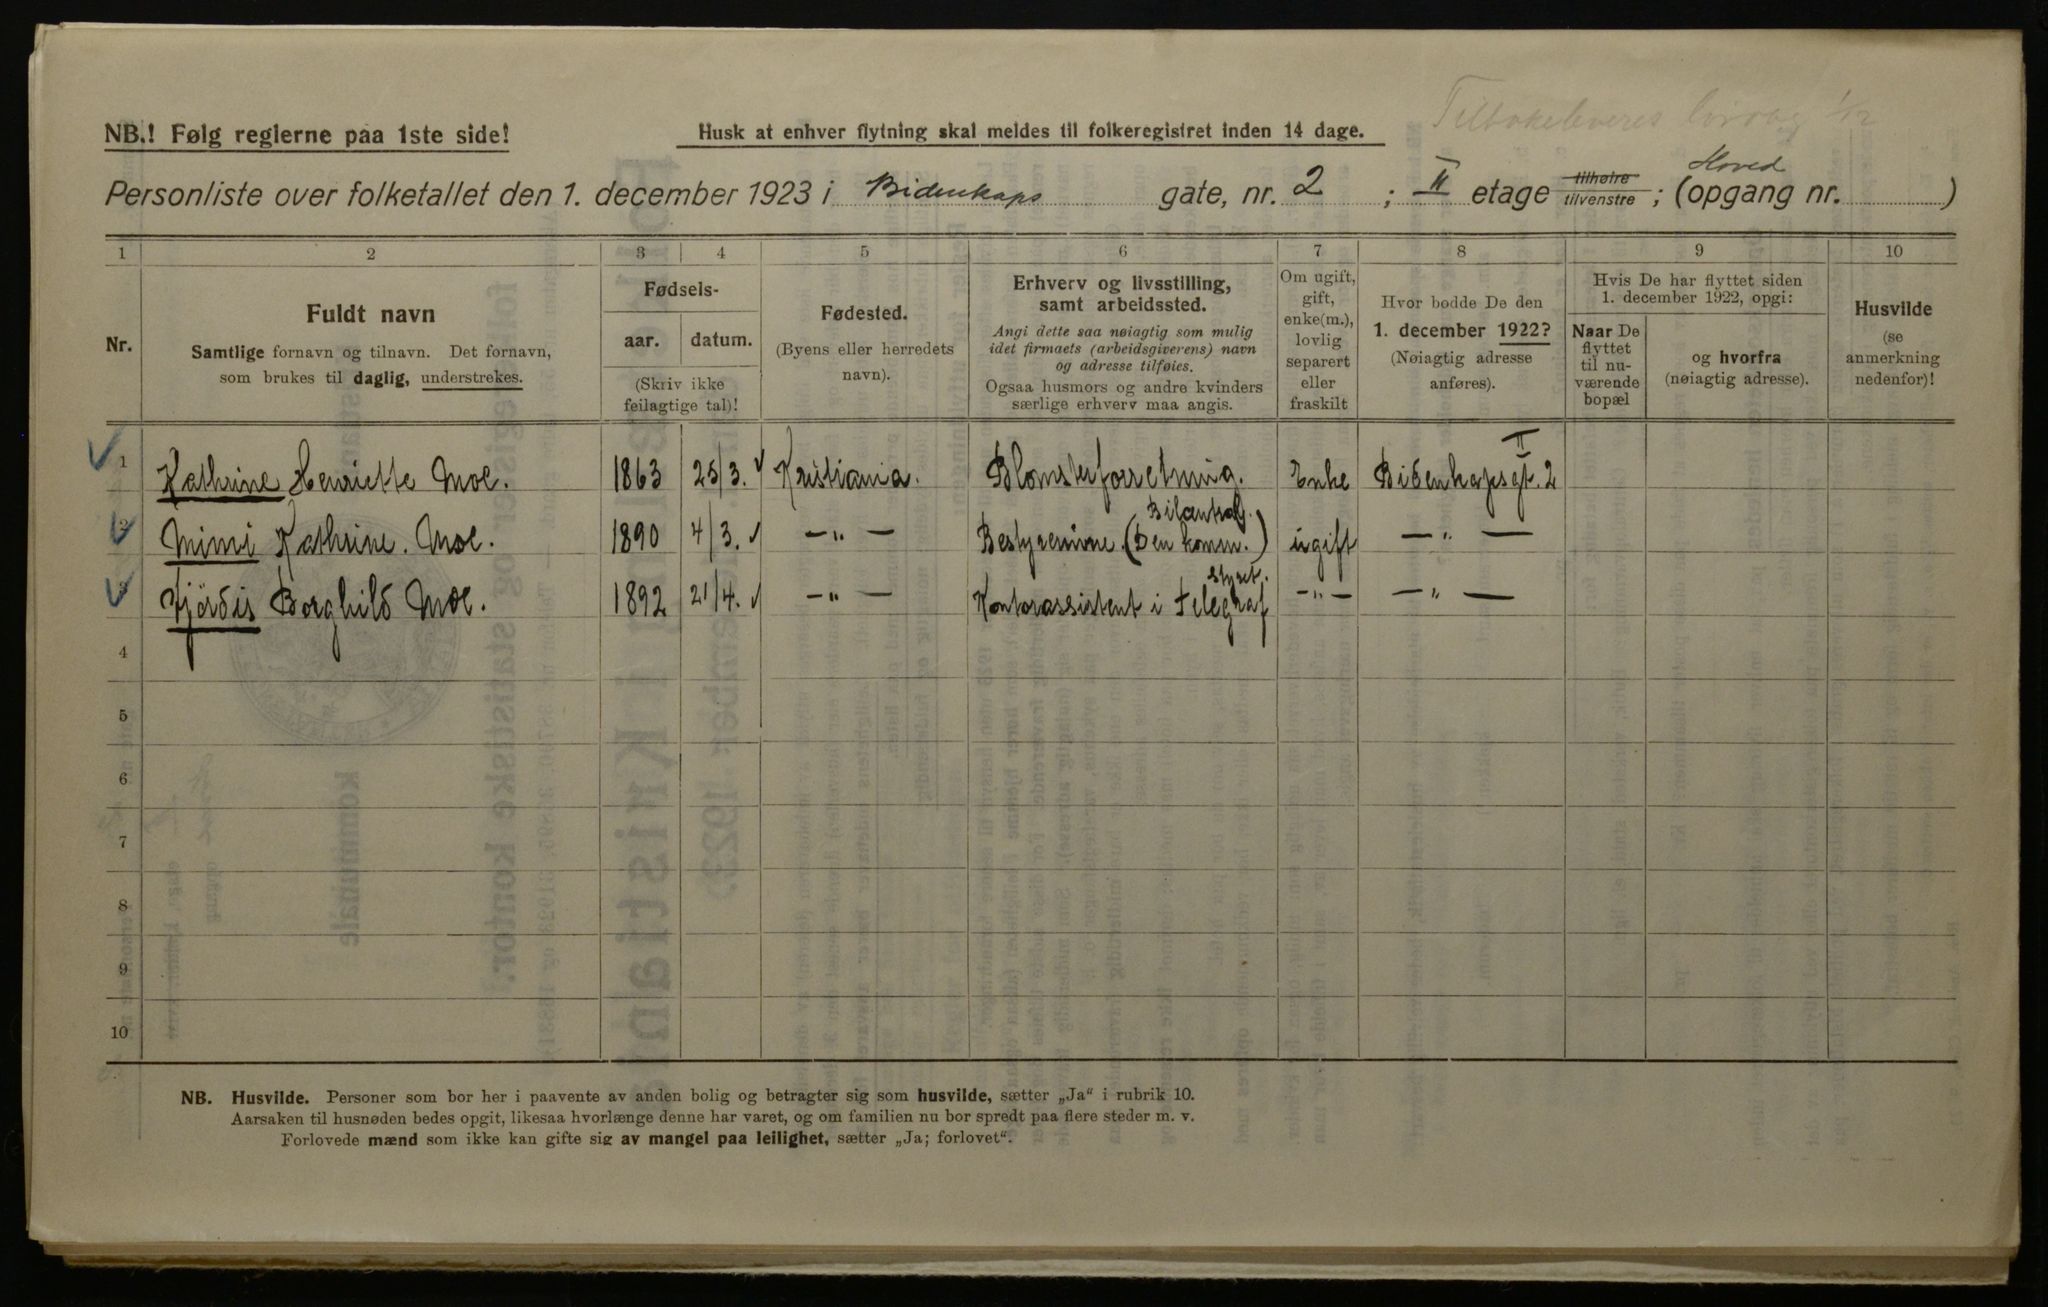 Tilbakeleveres 1/12
NB.! Følg reglerne paa 1ste side!
Husk at enhver flytning skal meldes til folkeregistret inden 14 dage.
Personliste over folketallet den 1. december 1923 i Bidenkaps gate, nr. 2 ; II etage tilhøire tilvenstre ; (Hoved opgang nr. )
1 2 3 4 5 6 7 8 9 10
Nr.
Fuldt navn
Samtlige fornavn og tilnavn. Det fornavn,
som brukes til daglig, understrekes.
Fødsels-
aar. datum.
(Skriv ikke
feilagtige tal)!
Fødested.
(Byens eller herredets
navn).
Erhverv og livsstilling,
samt arbeidssted.
Angi dette saa nøiagtig som mulig
idet firmaets (arbeidsgiverens) navn
og adresse tilføies.
Ogsaa husmors og andre kvinders
særlige erhverv maa angis.
Om ugift,
gift,
enke(m.),
lovlig
separert
eller
fraskilt
Hvor bodde De den
1. december 1922?
(Nøiagtig adresse
anføres).
Hvis De har flyttet siden
1. december 1922, opgi:
Naar De
flyttet
til nu-
værende
bopæl
og hvorfra
(nøiagtig adresse).
Husvilde
(se
anmerkning
nedenfor)!
1 Kathrine Henriette Moe. 1863 25/3. Kristiania. Blomsterforretning. Enke Bidenkapsgt. 2 II
2 Mimi Kathrine. Moe. 1890 4/3. —„— Bestyrerinne (Den komm. Bilcentral.) ugift —„—
3 Hjördis Borghild Moe. 1892 21/4. —„— Kontorassistent i Telegraf styret. —„— —„—
4
5
6
7
8
9
10
NB. Husvilde. Personer som bor her i paavente av anden bolig og betragter sig som husvilde, sætter „Ja“ i rubrik 10.
Aarsaken til husnøden bedes opgit, likesaa hvorlænge denne har varet, og om familien nu bor spredt paa flere steder m. v.
Forlovede mænd som ikke kan gifte sig av mangel paa leilighet, sætter „Ja; forlovet“.